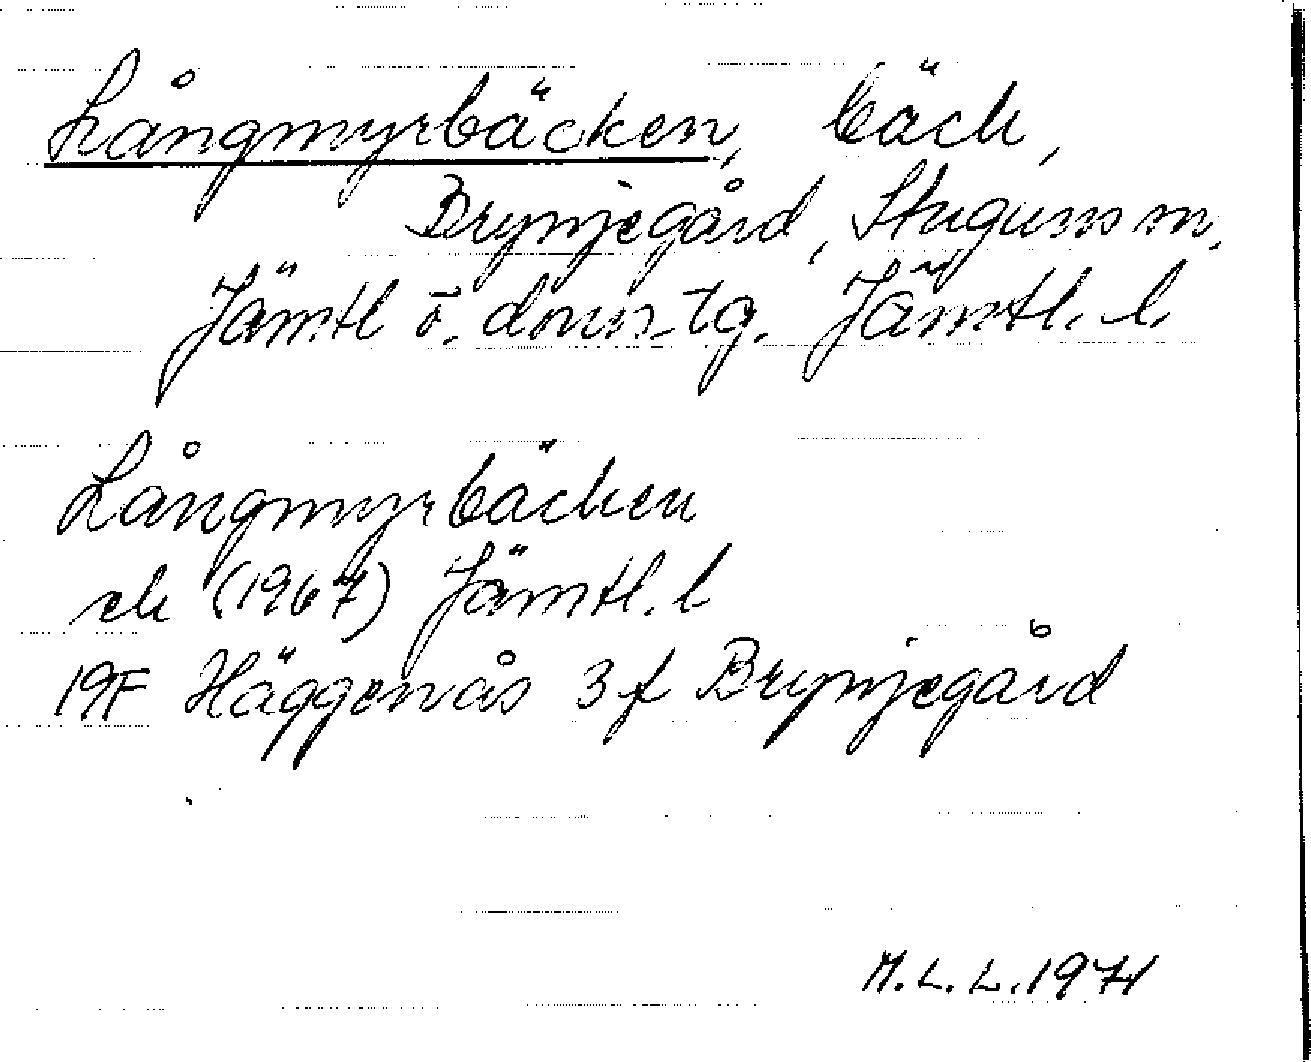 Långmyrbäcken, bäck,
Brynjegård, Stuguns sn,
Jämtl ö. doms-tg. Jämtl. l.
Långmyrbäcken
ek (1967) Jämtl. l
19F Häggenås 3f Brynjegård
M.L.L. 1971